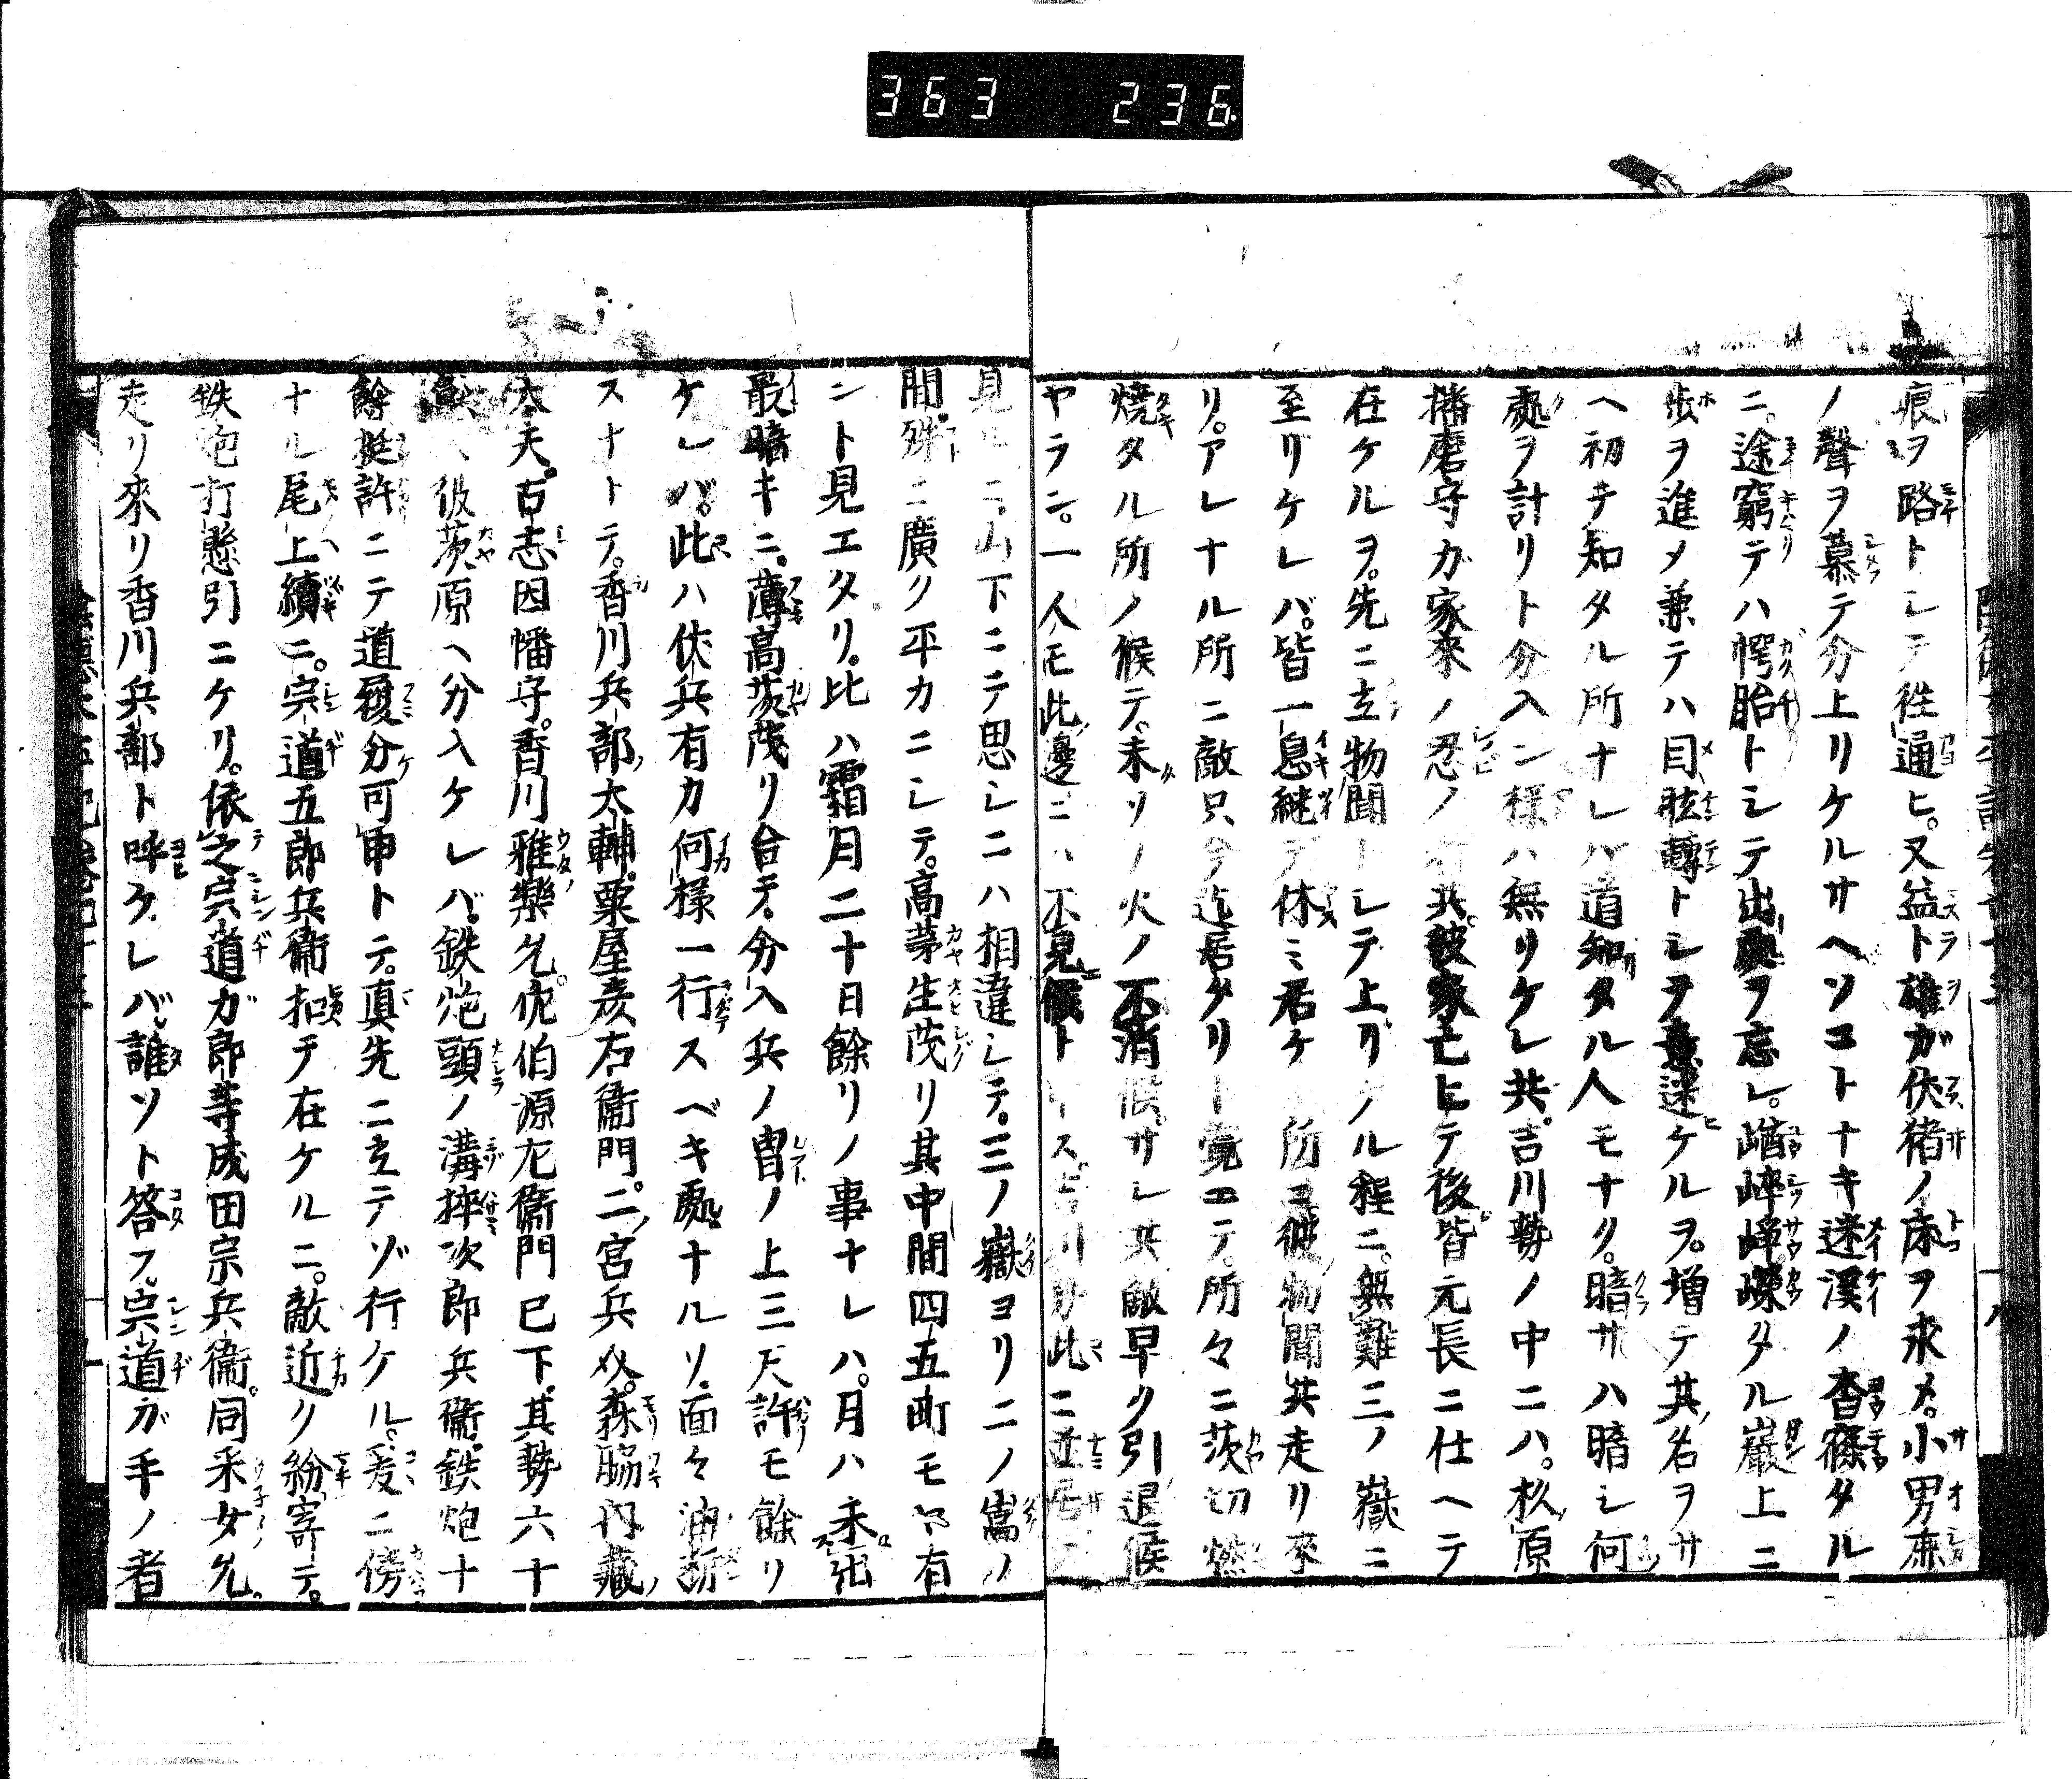 363 236
痕ヲ路トシテ徃通ヒ。又益ト雄ガ伏猪ノ床ヲ求メ。小男鹿
ノ聲ヲ慕テ分上リケルサヘソコトナキ迷溪ノ杳窱タル
ニ。途窮テハ愕眙トシテ出處ヲ忘レ。崷崪崢嶸タル巖上ニ
歩ヲ進メ兼テハ目眩轉トシテ意迷ケルヲ。増テ其名ヲサ
ヘ初テ知タル所ナレバ道知タル人モナク。暗サハ暗シ何
處ヲ計リト分入ン樣ハ無リケレ共。吉川勢ノ中ニハ。杦原
播磨守カ家來ノ忍ノ共。彼家亡ヒテ後皆元長ニ仕ヘテ
在ケルヲ。先ニ立物聞トシテ上リケル程ニ。無難三ノ嶽ニ
至リケレバ。皆一息継テ休ミ居ケ 所ヱ彼物聞共走リ來
リ。アレナル所ニ敵只今迄居タリト覚エテ。所々ニ茨切燃
焼タル所ノ候テ。未ソノ火ノ不消候。サレ共敵早ク引退候
ヤラニ。一人モ此邊ニハ不見候ト スピ 川カ此ニ並居
見 ニ山下ニテ思シニハ相違シテ。三ノ嶽ヨリ二ノ嵩ノ
間。殊ニ廣ク平カニシテ。高茅生茂リ其中間四五町モヤ有
ント見エタリ。比ハ霜月二十日餘リノ事ナレハ。月ハ未出
最暗キニ。薄高茨茂リ合テ。分入兵ノ冑ノ上三尺許モ餘リ
ケレバ。此ハ伏兵有カ何樣一行スベキ處ナルソ。面々油断
スナトテ。香川兵部太輔。粟屋彦右衞門。二宮兵 。森脇内藏
太夫。古志因幡守。香川雅樂允。佗伯源左衞門已下。其勢六十
 彼茨原ヘ分入ケレバ。鉄炮頭ノ溝挟次郎兵衞。鉄炮十
餘挺許ニテ道履分可申トテ。真先ニ立テゾ行ケル。爰ニ傍
ナル尾上續ニ。宗道五郎兵衞扣テ在ケルニ。敵近ク紛寄テ。
鉄炮打懸引ニケリ。依之宗道ガ郎等成田宗兵衞。同采女允。
走リ來リ香川兵部ト呼ケレバ。誰ソト答フ。宗道ガ手ノ者